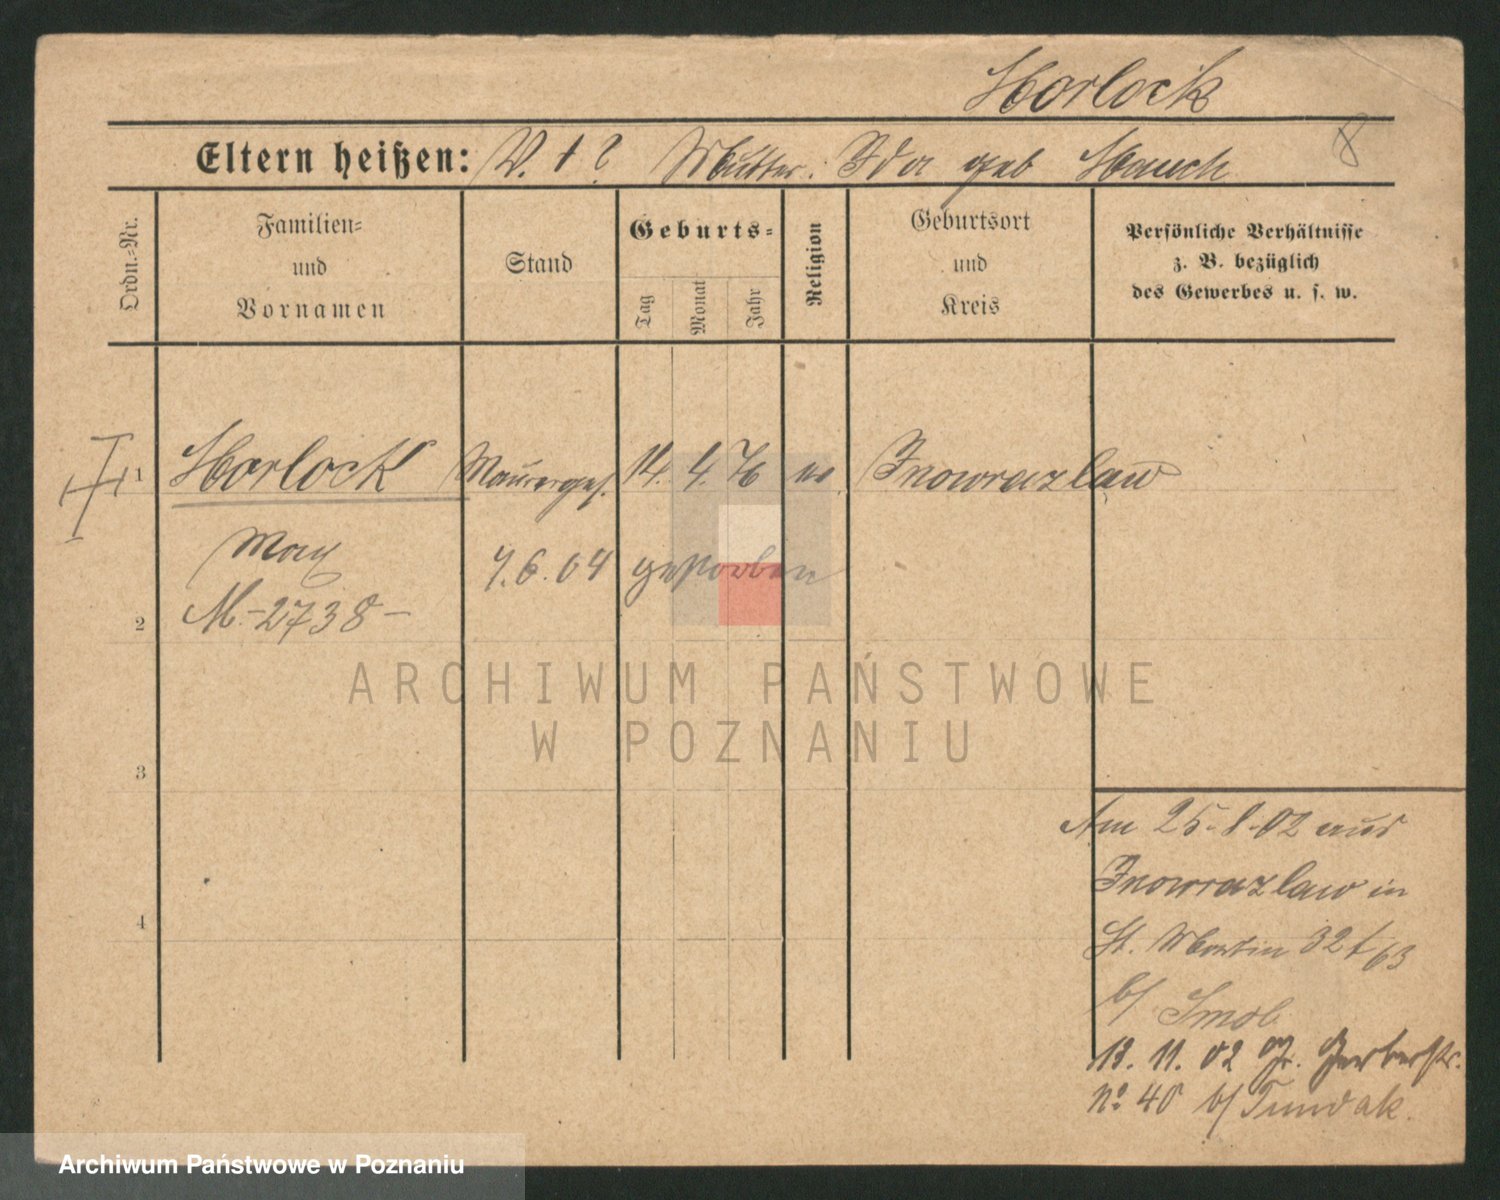 Horlock
8
Eltern heißen: V. † ? Mutter: Ida geb Hauch
Ordn.=Nr.
Familien=
und
Vornamen
Stand
Geburts=
Tag
Monat
Jahr
Religion
Geburtsort
und
Kreis
Persönliche Verhältnisse
z. B. bezüglich
des Gewerbes u. s. w.
1 Horlock Maurerges. 14. 4. 76 ev. Inowrazlaw
Max 7.6.04 gestorben
2 M.-2738-
3
4
Am 25.8.02 aus
Inowrazlaw in
St. Martin 32 t 63
b/ Smol
13. 11. 02 Gr. Gerberstr.
No. 40 b/ Tundak.
ARCHIWUM PAŃSTWOWE
W POZNANIU
Archiwum Państwowe w Poznaniu